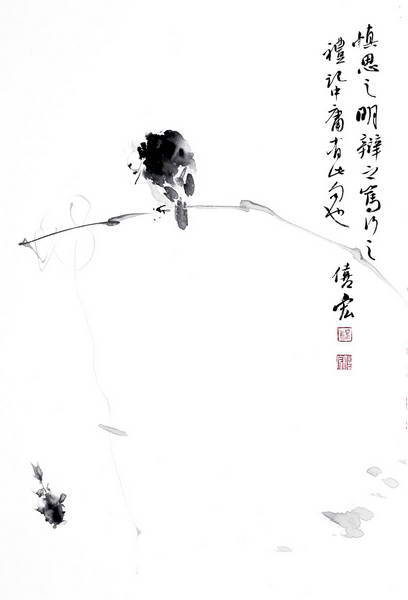 慎思之明辯之篤行之
禮記中庸有此句也
僖宏